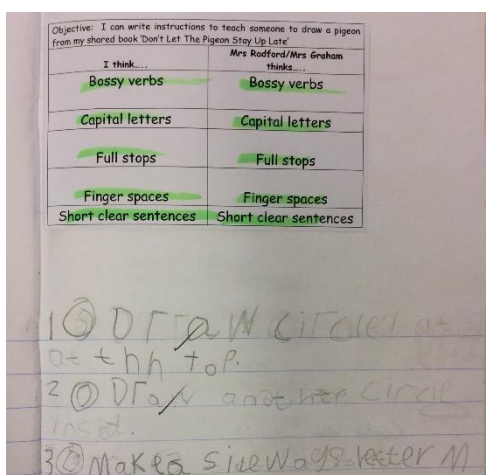 Objective: I can write instructions to teach someone to draw a pigeon
from my shared book 'Don't Let The Pigeon Stay Up Late'
I think.... Mrs Radford/Mrs Graham
thinks....
Bossy verbs Bossy verbs
Capital letters Capital letters
Full stops Full stops
Finger spaces Finger spaces
Short clear sentences Short clear sentences
1 Draw circle at
at thh top.
2 Draw another circle
insed.
3 Make a sideways letter M